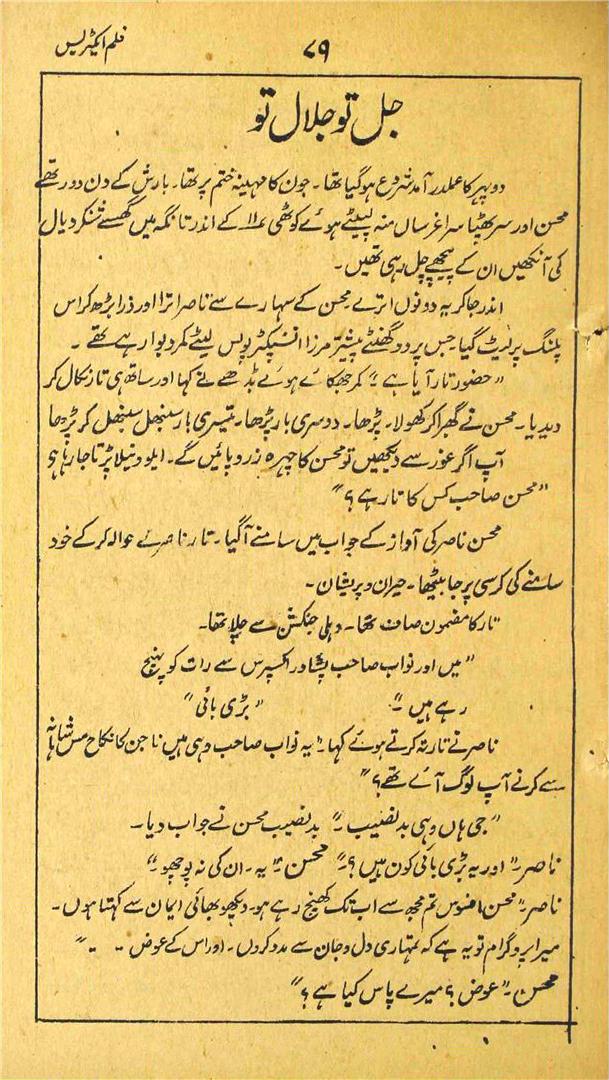 فلم ایکٹریس
۷۹
جل تو جلال تو
دوپہر کا عملدرآمد شروع ہوگیا تھا۔ جون کا مہینہ ختم پر تھا۔ بارش کے دن دور تھے
محسن اور سرکھپا سراغرساں منہ لپیٹے ہوئے کوٹھی کے اندر تانگہ میں گھسے شنکر دیال
کی آنکھیں ان کے پیچھے چل رہی تھیں۔
اندر جا کر یہ دونوں اترے محسن کے سہارے سے ناصر اترا اور ذرا بڑھ کر اس
پلنگ پر لیٹ گیا۔ جس پر دو گھنٹے پیشتر مرزا انسپکٹر پولس لیٹے کمر دبوا رہے تھے۔
"حضور تار آیا ہے" کمر جھکائے ہوئے بڈھے نے کہا اور ساتھ ہی تار نکال کر
دیدیا۔ محسن نے گھبرا کر کھولا۔ پڑھا۔ دوسری بار پڑھا۔ تیسری بار سنبھل سنبھل کر پڑھا
آپ اگر غور سے دیکھیں تو محسن کا چہرہ زرد پائیں گے۔ ایلو وہ نیلا پڑتا جا رہا ہے
"محسن صاحب کس کا تار ہے؟"
محسن ناصر کی آواز کے جواب میں سامنے آگیا۔ تار ناصر کے حوالہ کر کے خود
سامنے کی کرسی پر جا بیٹھا۔ حیران و پریشان۔
تار کا مضمون صاف تھا۔ دہلی جنکشن سے چلا تھا۔
"میں اور نواب صاحب پشاور اکسپرس سے رات کو پہنچ
رہے ہیں۔" "بڑی بائی"
ناصر نے تار تہ کرتے ہوئے کہا۔ "یہ نواب صاحب وہی ہیں نا جن کا نکاح مس شاہانہ
سے کرنے آپ لوگ آئے تھے؟"
"جی ہاں وہی بدنصیب۔" بدنصیب محسن نے جواب دیا۔
ناصر۔ "اور یہ بڑی بائی کون ہیں؟" محسن۔ "یہ۔ ان کی نہ پوچھو۔"
ناصر۔ "محسن افسوس تم مجھ سے اب تک کھنچ رہے ہو۔ دیکھو بھائی ایمان سے کہتا ہوں۔
میرا پروگرام تو یہ ہے کہ تمہاری دل و جان سے مدد کروں۔ اور اس کے عوض - - "
محسن۔ "عوض؟ میرے پاس کیا ہے؟"